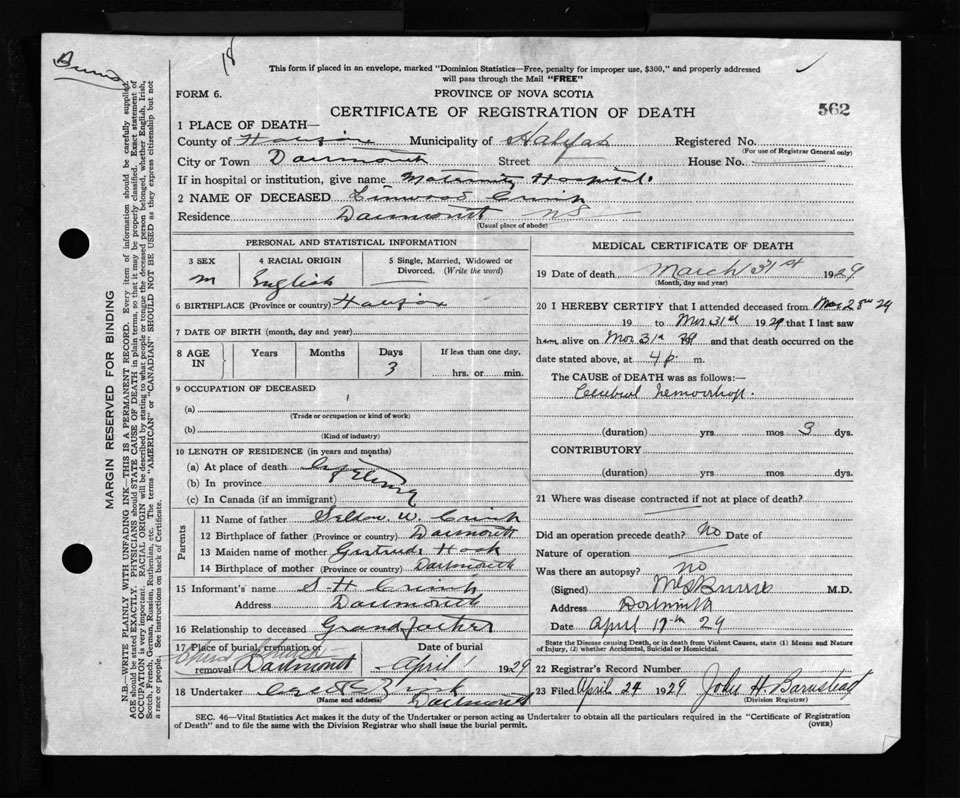 18
This form if placed in an envelope, marked "Dominion Statistics—Free, penalty for improper use, $300," and properly addressed
will pass through the Mail "FREE"
FORM 6.
PROVINCE OF NOVA SCOTIA
CERTIFICATE OF REGISTRATION OF DEATH
562
1 PLACE OF DEATH—
County of Halifax Municipality of Halifax Registered No.
(For use of Registrar General only)
City or Town Dartmouth Street House No.
If in hospital or institution, give name Maternity Hospital.
2 NAME OF DECEASED Linwood
Residence Dartmouth NS
(Usual place of abode)
PERSONAL AND STATISTICAL INFORMATION
3 SEX
M
4 RACIAL ORIGIN
English
5 Single, Married, Widowed or
Divorced. (Write the word)
6 BIRTHPLACE (Province or country) Halifax
7 DATE OF BIRTH (month, day and year)
8 AGE IN
Years Months Days If less than one day,
3 hrs. or min.
9 OCCUPATION OF DECEASED
(a)
(Trade or occupation or kind of work)
(b)
(Kind of industry)
10 LENGTH OF RESIDENCE (in years and months)
(a) At place of death
(b) In province
(c) In Canada (if an immigrant)
Parents
11 Name of father W.
12 Birthplace of father (Province or country) Dartmouth
13 Maiden name of mother Gertrude Hook
14 Birthplace of mother (Province or country) Dartmouth
15 Informant's name S H
Address Dartmouth
16 Relationship to deceased Grandfather
17 Place of burial, cremation or Date of burial
removal Dartmouth April 1 1929
18 Undertaker
(Name and address) Dartmouth
MEDICAL CERTIFICATE OF DEATH
19 Date of death March 31st 1929
(Month, day and year)
20 I HEREBY CERTIFY that I attended deceased from Mar 28th 29
19 to Mar 31st 1929 that I last saw
him alive on Mar 31st and that death occurred on the
date stated above, at 4 p. m.
The CAUSE of DEATH was as follows:—
Cerebral hemorrhage.
(duration) yrs mos 3 dys.
CONTRIBUTORY
(duration) yrs mos dys.
21 Where was disease contracted if not at place of death?
Did an operation precede death? No Date of
Nature of operation
Was there an autopsy? no
(Signed) M.D.
Address Dartmouth
Date April 17th 29
State the Disease causing Death, or in death from Violent Causes, state (1) Means and Nature
of Injury, (2) whether Accidental, Suicidal or Homicidal.
22 Registrar's Record Number
23 Filed April 24 1929 John H. Barnstead
(Division Registrar)
SEC. 46—Vital Statistics Act makes it the duty of the Undertaker or person acting as Undertaker to obtain all the particulars required in the "Certificate of Registration
of Death" and to file the same with the Division Registrar who shall issue the burial permit. (OVER)
MARGIN RESERVED FOR BINDING
N.B.—WRITE PLAINLY WITH UNFADING INK—THIS IS A PERMANENT RECORD. Every item of information should be carefully supplied.
AGE should be stated EXACTLY. PHYSICIANS should STATE CAUSE OF DEATH in plain terms, so that it may be properly classified. Exact statement of
OCCUPATION is very important. RACIAL ORIGIN will be described by stating to what people or tongue the deceased person belonged, whether English, Irish,
Scotch, French, German, Russian, Ruthenian, etc. The terms "AMERICAN" or "CANADIAN" SHOULD NOT BE USED as they express citizenship but not
a race or people. See instructions on back of Certificate.